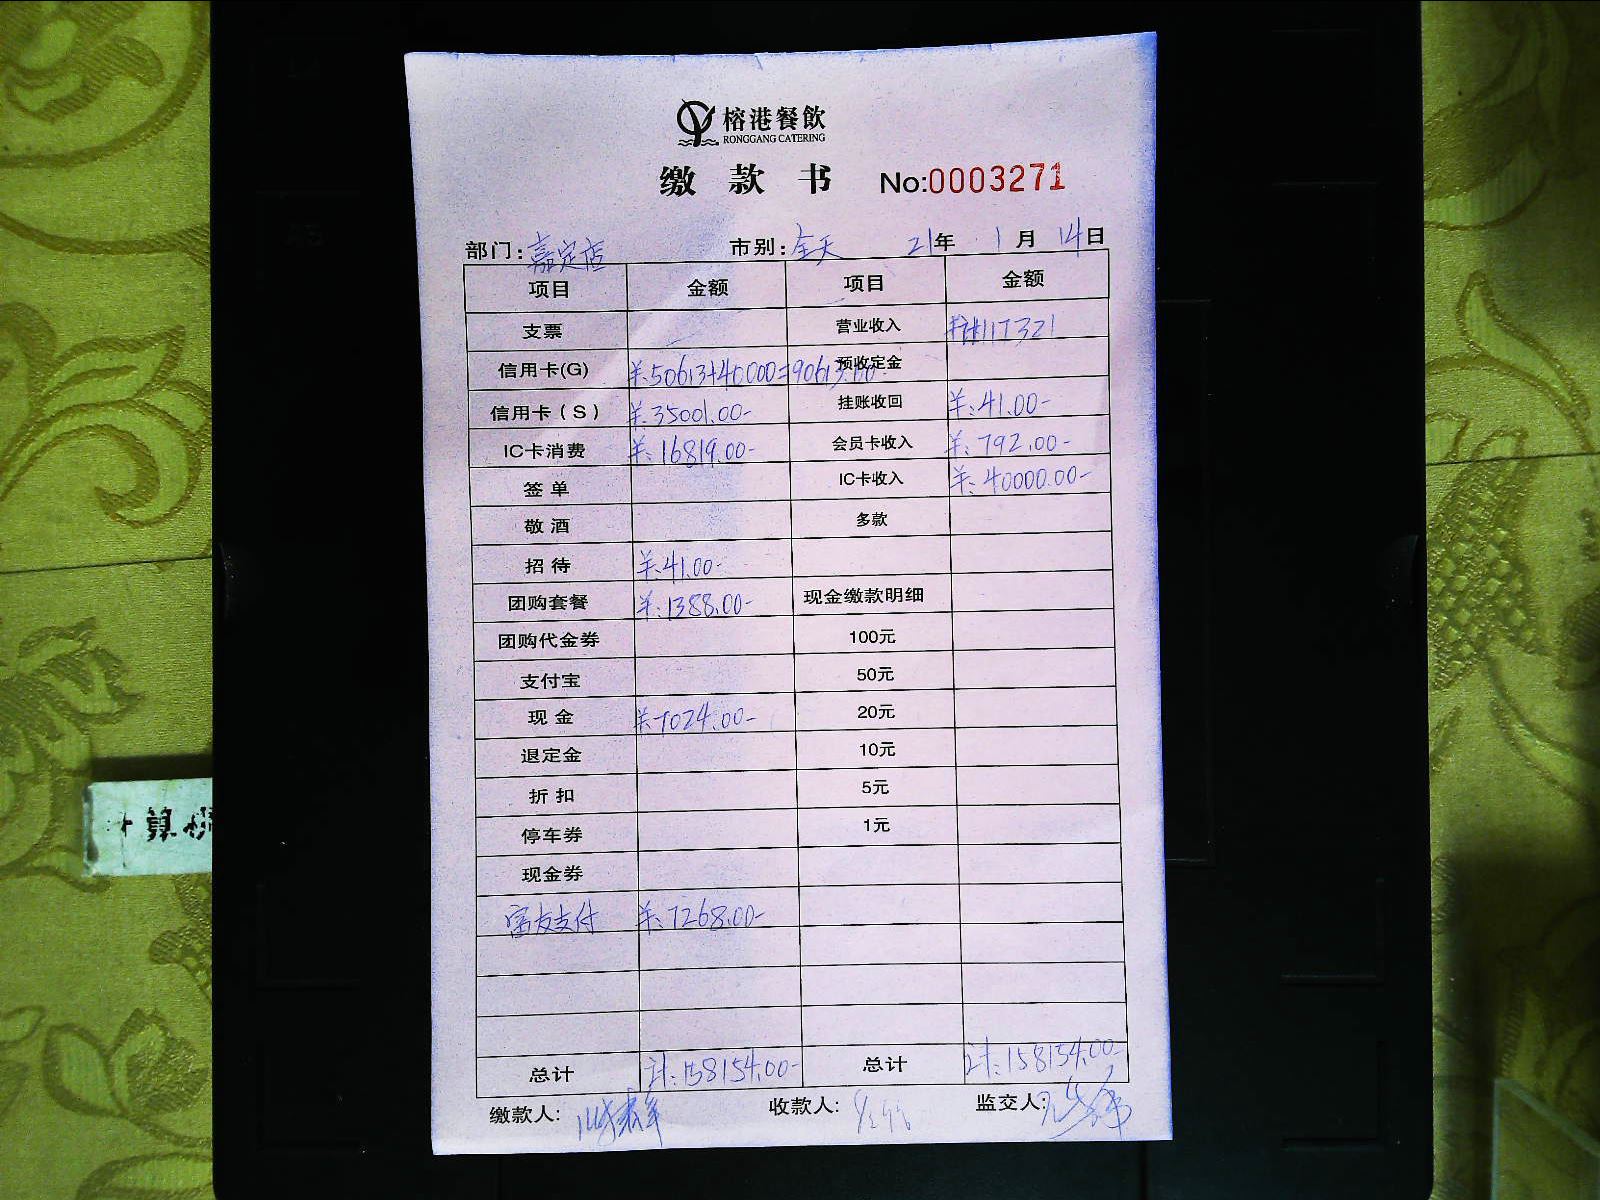 榕港餐飲
RONGGANG CATERING
缴 款 书 No:0003271
部门: 嘉定店 市别: 全天 21年 1月 14日
项目 金额 项目 金额
支票 营业收入 117321
信用卡(G) ¥:50613+40000=90613.00- 预收定金
信用卡(S) ¥:35001.00- 挂账收回 ¥:41.00-
IC卡消费 ¥:16819.00- 会员卡收入 ¥:792.00-
签单 IC卡收入 ¥:40000.00-
敬酒 多款
招待 ¥:41.00-
团购套餐 ¥:1388.00- 现金缴款明细
团购代金券 100元
支付宝 50元
现金 ¥:7024.00- 20元
退定金 10元
折扣 5元
停车券 1元
现金券
富友支付 ¥:7268.00-
总计 计:158154.00- 总计 计:158154.00-
缴款人: 收款人: 监交人:
计算机